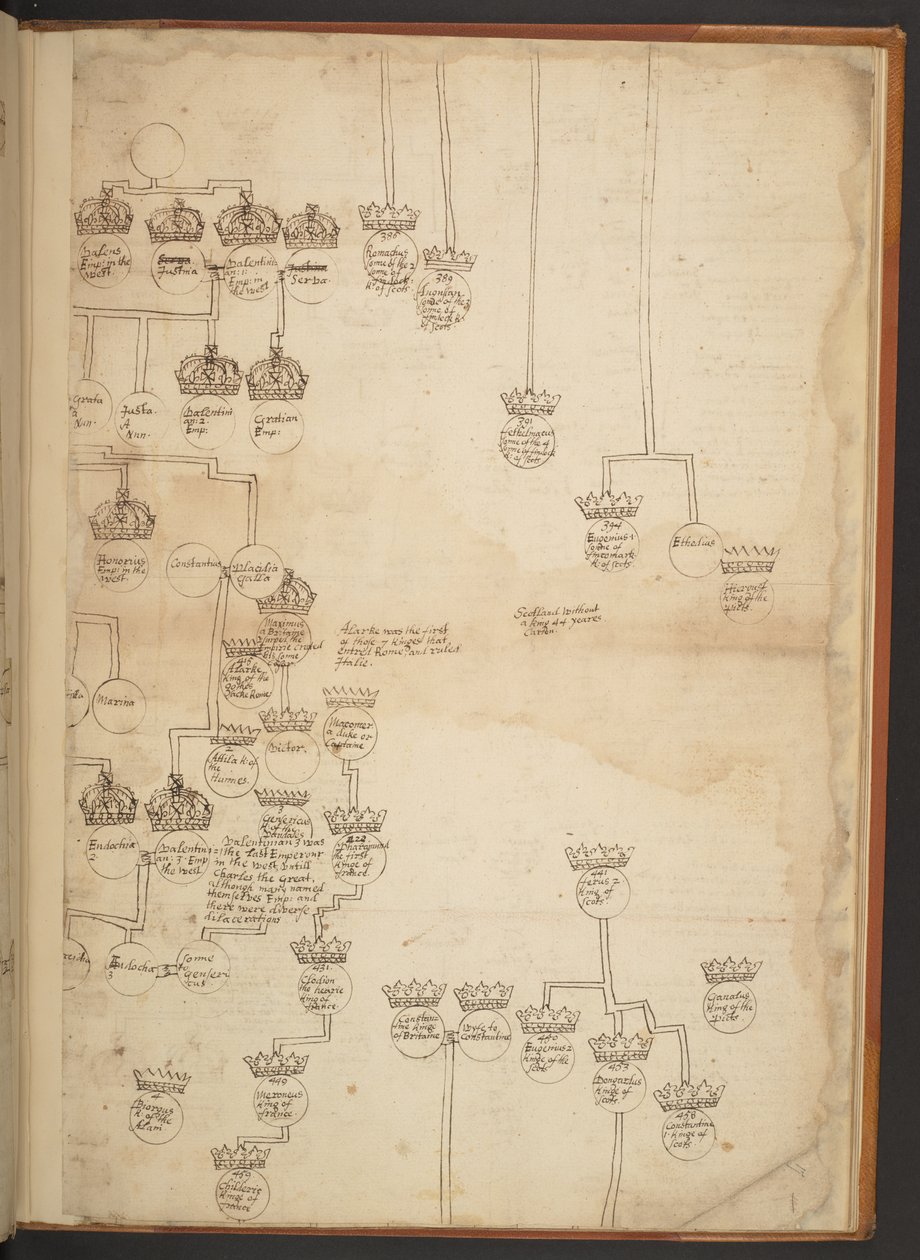 Valens
Emp: in the
west.
Serva.
Justina
Valentini
an: 1:
Emp: in
the west
Justina
Serva.
386
Romachus
sonne of the 2
sonne of
k. of scots
389
sonne of the 3
sonne of
of scots
Grata
a
Nun.
Justa.
A
Nun.
Valentini
an: 2.
Emp:
Gratian
Emp:
391
sonne of the 4
k: of scots
394
Eugenius 1
sonne of
k: of scots.
Ethelius
king of the
Picts.
Honorius
Emp: in the
west.
Constantius
Placidia
Galla
Maximus
a Britaine
usurped the
Empire ended
Scotland without
a king 44 yeares
Alarke was the first
of those 7 kinges that
entred Rome and ruled
Italie.
Alarke
king of
the
gothes
sacke Rome
Marina
2
Attila k. of
the
Hunnes.
Victor.
a duke or
Captaine
3
Gensericus
k. of the
Vandales
the first
kinge of
france.
Eudochia
2.
Valentini
an: 3. Emp
the west
Valentinian 3 was
the last Emperour
in the west untill
Charles the great,
although many named
themselves Emp: and
there were diverse
dilacerations
441
Ferus 2
king of
scots
Eudocha
3
some
to
genseri
cus.
431.
Clodion
the hearie
king of
france.
Constan
tine kinge
of Britaine
wyfe to
Constantine
450
Eugenius 2
kinge of the
scots
453
Dongardus
kinge of
scots.
458
Constantine
1. kinge of
scots.
king of the
Picts
449
Meroneus
king of
france.
4
k. of the
Alam
459
Childeric
kinge of
france